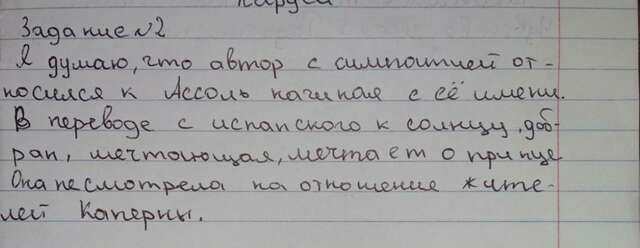 Задание №2
Я думаю, что автор с симпатией от-
носился к Ассоль начиная с её имени.
В переводе с испанского к солнцу, доб-
рая, мечтающая, мечтает о принце
Она несмотрела на отношение жите-
лей Каперны.